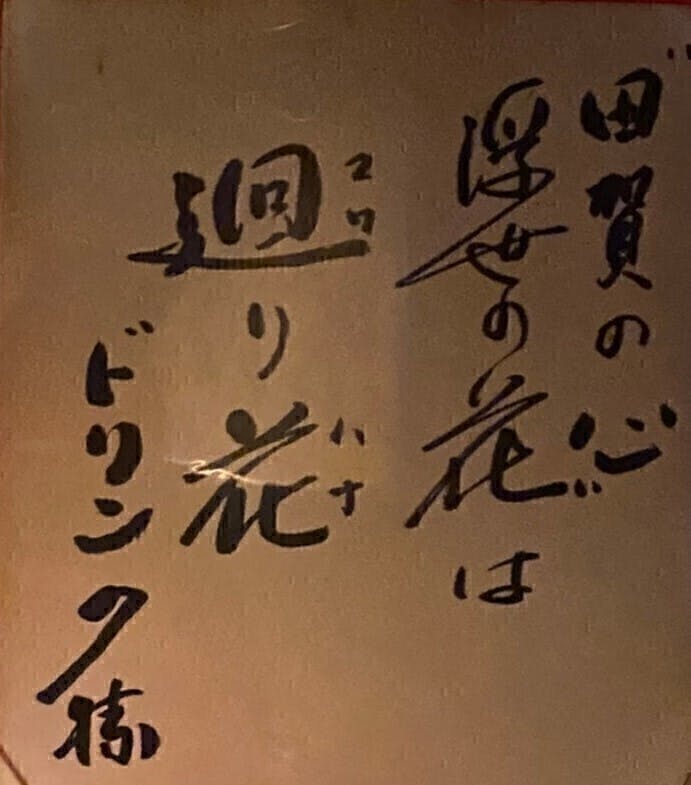 田賀の心
浮世の花は
廻り花
マワ
ハナ
ドリンク様